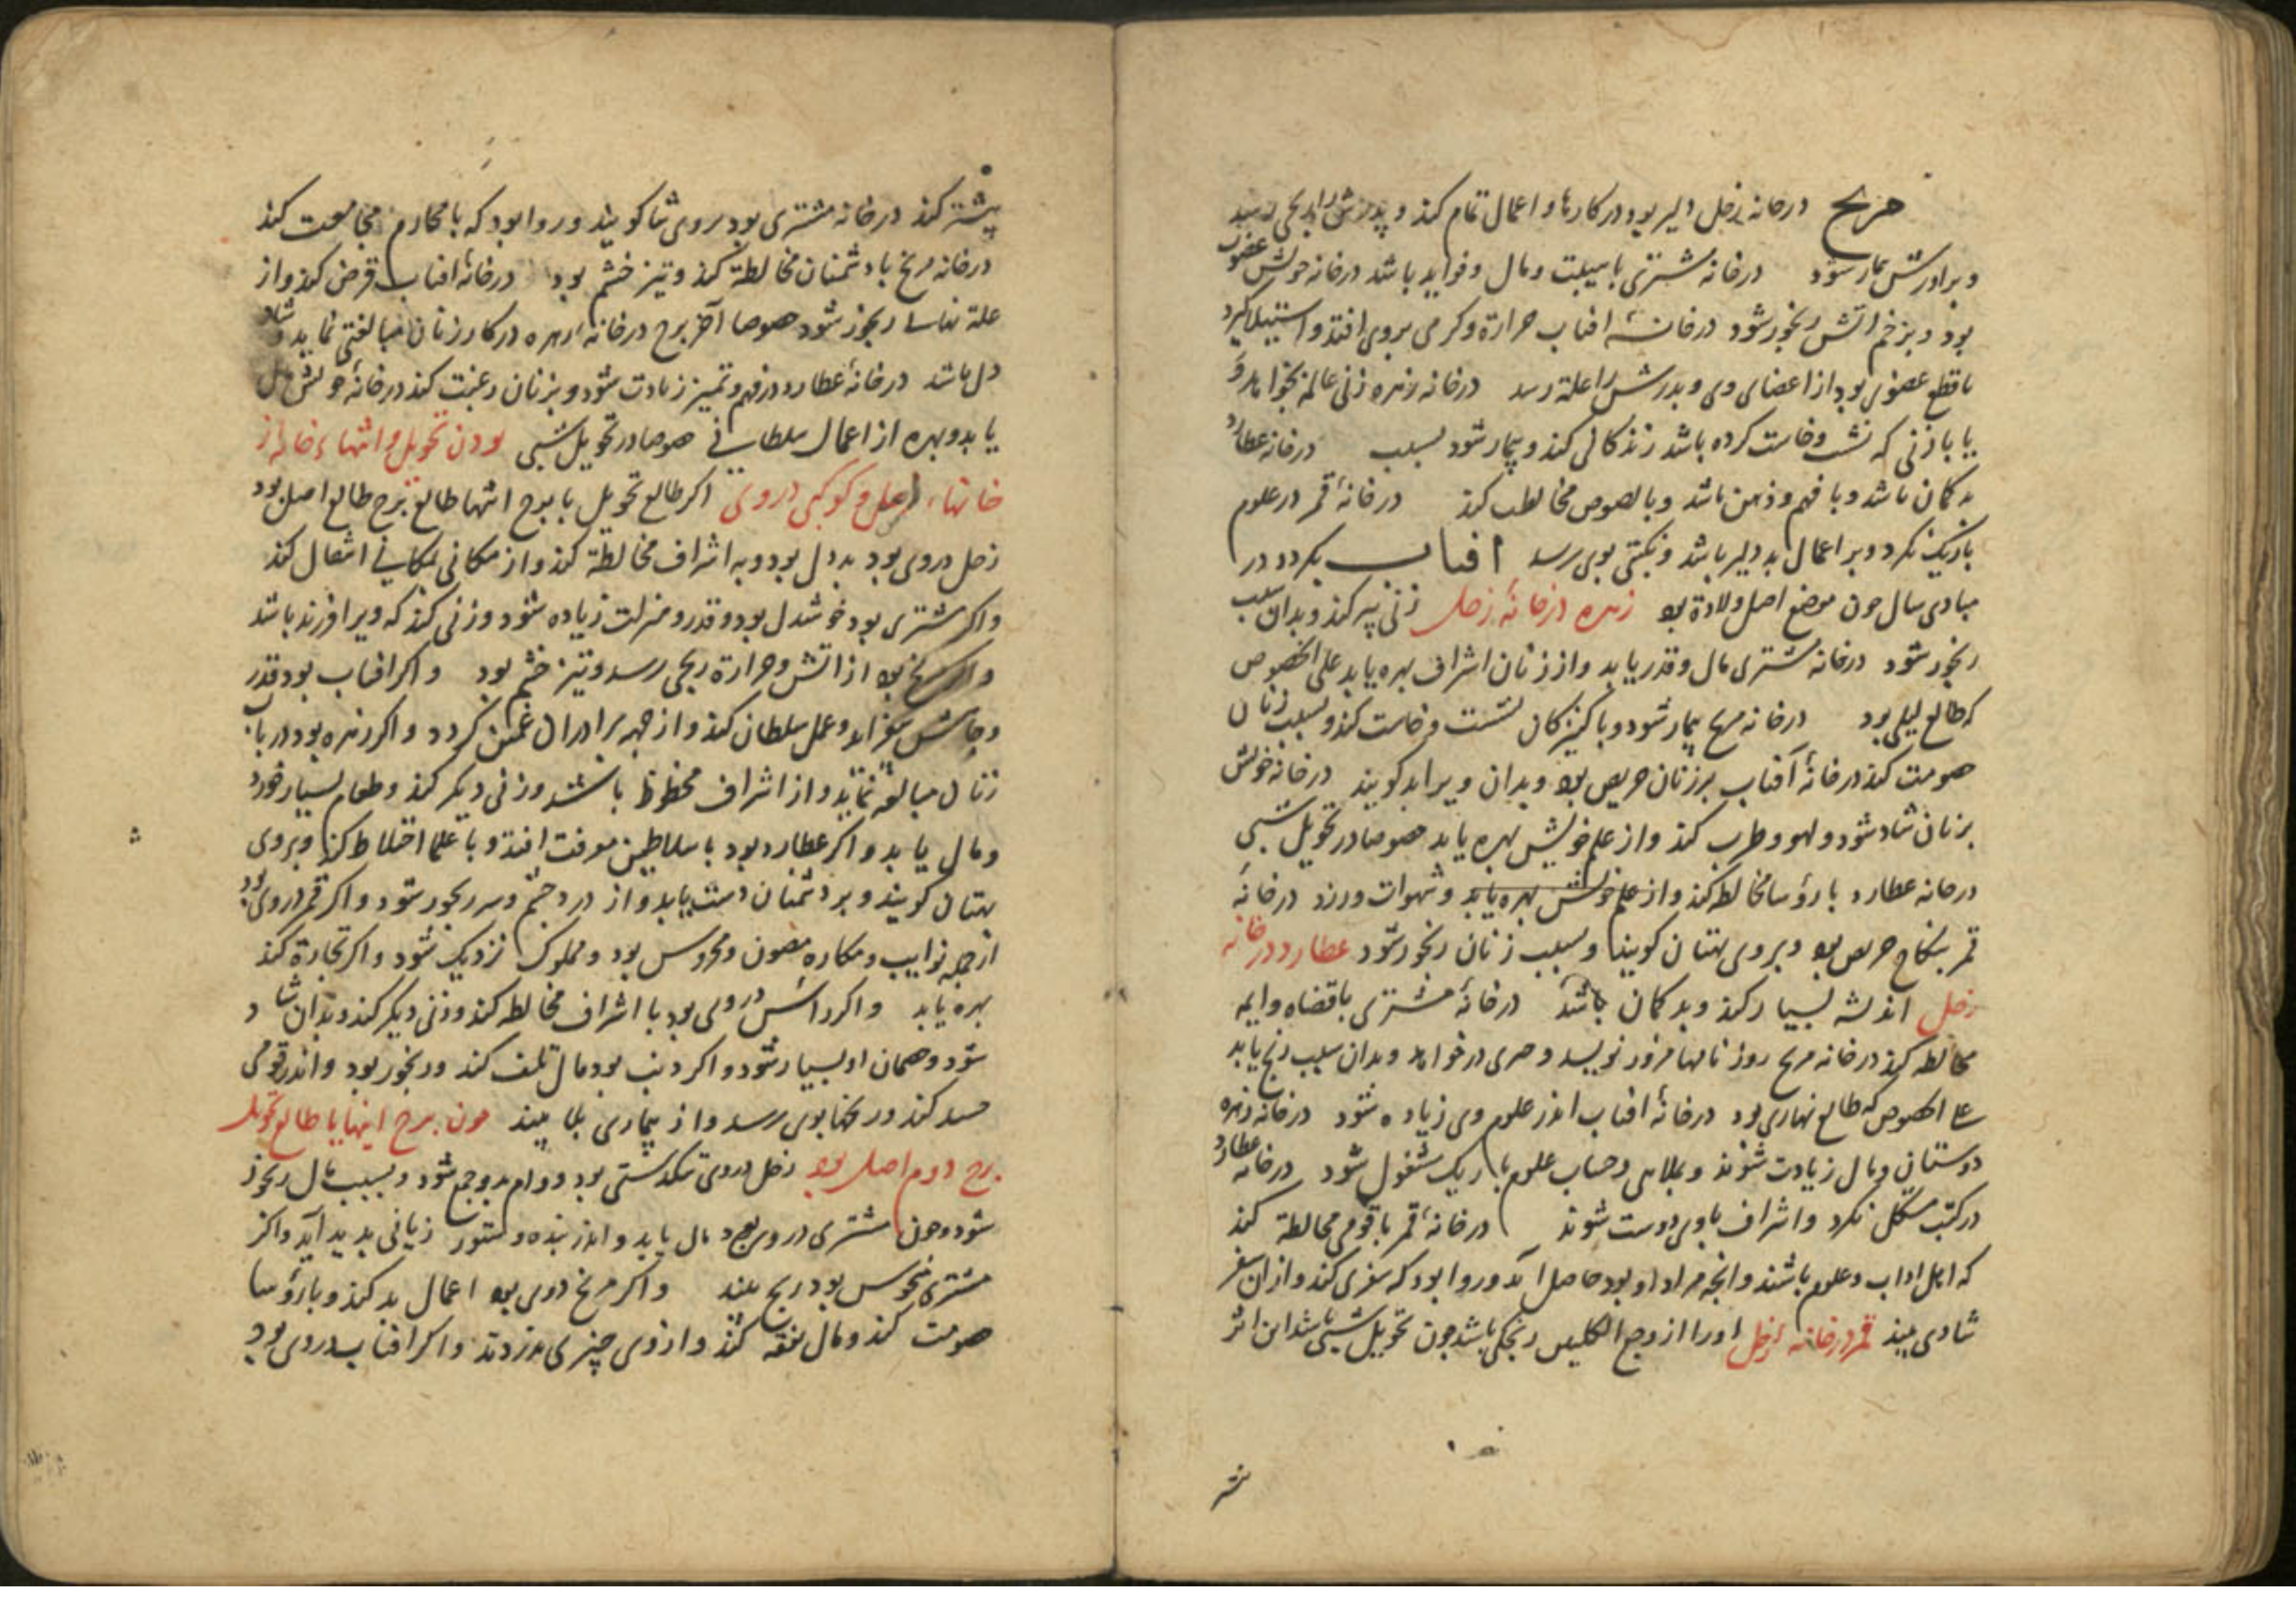 مریخ درخانه زحل دلیر بود در کارها و اعمال تمام کند و پدرش را رنجی رسد
و برادرش بیمار شود درخانه مشتری با هیبت و مال و فواید باشد درخانه خویش غضوب
بود و بزخم آتش رنجور شود درخانهٔ افتاب حرارة و کرمی بروی افتد و استیلا کیرد
یا قطع عضوی بود از اعضای وی و پدرش را علة رسد درخانه زهره زنی عالمه بخواهد و
یا با زنی که نشست و خاست کرده باشد زندکانی کند و بیمار شود بسبب درخانه عطارد
بد کمان باشد و با فهم و ذهن باشد و با لصوص مخالطب کند درخانهٔ قمر در علوم
باریک نکرد و بر اعمال بد دلیر باشد و نکبتی بوی رسد افتاب بکردد در
مبادی سال چون موضع اصل ولادة بود زهره درخانهٔ زحل زنی پیر کند و بدان سبب
رنجور شود درخانه مشتری مال و قدر یابد و از زنان اشراف بهره یابد علی الخصوص
که طالع لیلی بود درخانه مریخ بیمار شود و با کنیزکان نشست و خاست کند و بسبب زنان
خصومت کند درخانهٔ آفتاب بر زنان حریص بود و بدان ویرا بد کویند درخانه خویش
بزنان شاد شود و لهو و طرب کند و از علم خویش بهره یابد خصوصا در تحویل شبی
درخانه عطارد با رؤسا مخالطه کند و از علم خویش بهره یابد و شهوات ورزد درخانهٔ
قمر بنکاح حریص بود و بروی بهتان کویند و بسبب زنان رنجور شود عطارد درخانه
زحل اندیشه بسیار کند و بد کمان باشد درخانهٔ مشتری با قضاه و ایمه
مخالطه کند درخانه مریخ روز نامها مزور نویسد و بدان سبب رنج یابد
علی الخصوص که طالع نهاری بود درخانهٔ افتاب اندر علوم وی زیاده شود درخانه زهره
دوستان و مال زیادت شوند و بملاهی و حساب علوم باریک مشغول شود درخانه عطارد
در کتب مشکل نکرد و اشراف با وی دوست شوند درخانهٔ قمر با قومی مخالطة کند
که اهل اداب و علوم باشند و انچه مراد او بود حاصل آید و روا بود که سفری کند و از ان سفر
شادی بیند قمر درخانه زحل او را از وجع رنجکی باشد چون تحویل شبی باشد این اثر
بیشتر کند درخانه مشتری بود بروی ثنا کویند و روا بود که با محارم مجامعت کند
درخانه مریخ با دشمنان مخالطة کند و تیز خشم بود درخانهٔ افتاب قرض کند و از
علة رنجور شود خصوصا آخر برج درخانهٔ زهره در کار زنان مبالغتی نماید و شاد
دل باشد درخانهٔ عطارد در فهم و تمییز زیادت شود و بزنان رغبت کند درخانهٔ خویش مال
یابد و بهره از اعمال سلطانی خصوصا در تحویل شبی بودن تحویل و انتهاء خانه از
خانهاء اصل و کوکبی در وی اکر طالع تحویل یا برج انتها طالع برج طالع اصل بود
زحل در وی بود بد دل بود و به اشراف مخالطة کند و از مکانی بمکانی انتقال کند
و اکر مشتری بود خوشدل بود و قدر و منزلت زیاده شود و زنی کند که ویرا فرزند باشد
و اکر مریخ بود از آتش و حرارة رنجی رسد و تیز خشم بود و اکر افتاب بود قدر
و جاهش بیفزاید و عمل سلطان کند و از جهه برادران غمین کردد و اکر زهره بود در باب
زنان مبالغه نماید و از اشراف محظوظ باشد و زنی دیکر کند و طعام بسیار خورد
و مال یابد و اکر عطارد بود با سلاطین معرفت افتد و با علما اختلاط کند و بروی
بهتان کویند و بر دشمنان دست یابد و از درد چشم و سر رنجور شود و اکر قمر در وی بود
از جمله نوایب و مکاره مصون و محروس بود و بملوک نزدیک شود و اکر تجارة کند
بهره یابد و اکر راس در وی بود با اشراف مخالطه کند و زنی دیکر کند و بدان شاد
شود و مهمان او بسیار شود و اکر ذنب بود مال تلف کند و رنجور بود و اندر قومی
حسد کند و رنجها بوی رسد و از بیماری بلا بیند چون برج انتها یا طالع تحویل
برج دوم اصل بود زحل در وی تنکدستی بود و وام بر وی جمع شود و بسبب مال رنجور
شود و چون مشتری در وی بود مال یابد و اندر بنده و ستور زیانی پدید آید و اکر
مشتری منحوس بود رنج بیند و اکر مریخ در وی بود اعمال بد کند و با رؤسا
خصومت کند و مال نفقه کند و از وی چیزی بدزدند و اکر افتاب در وی بود